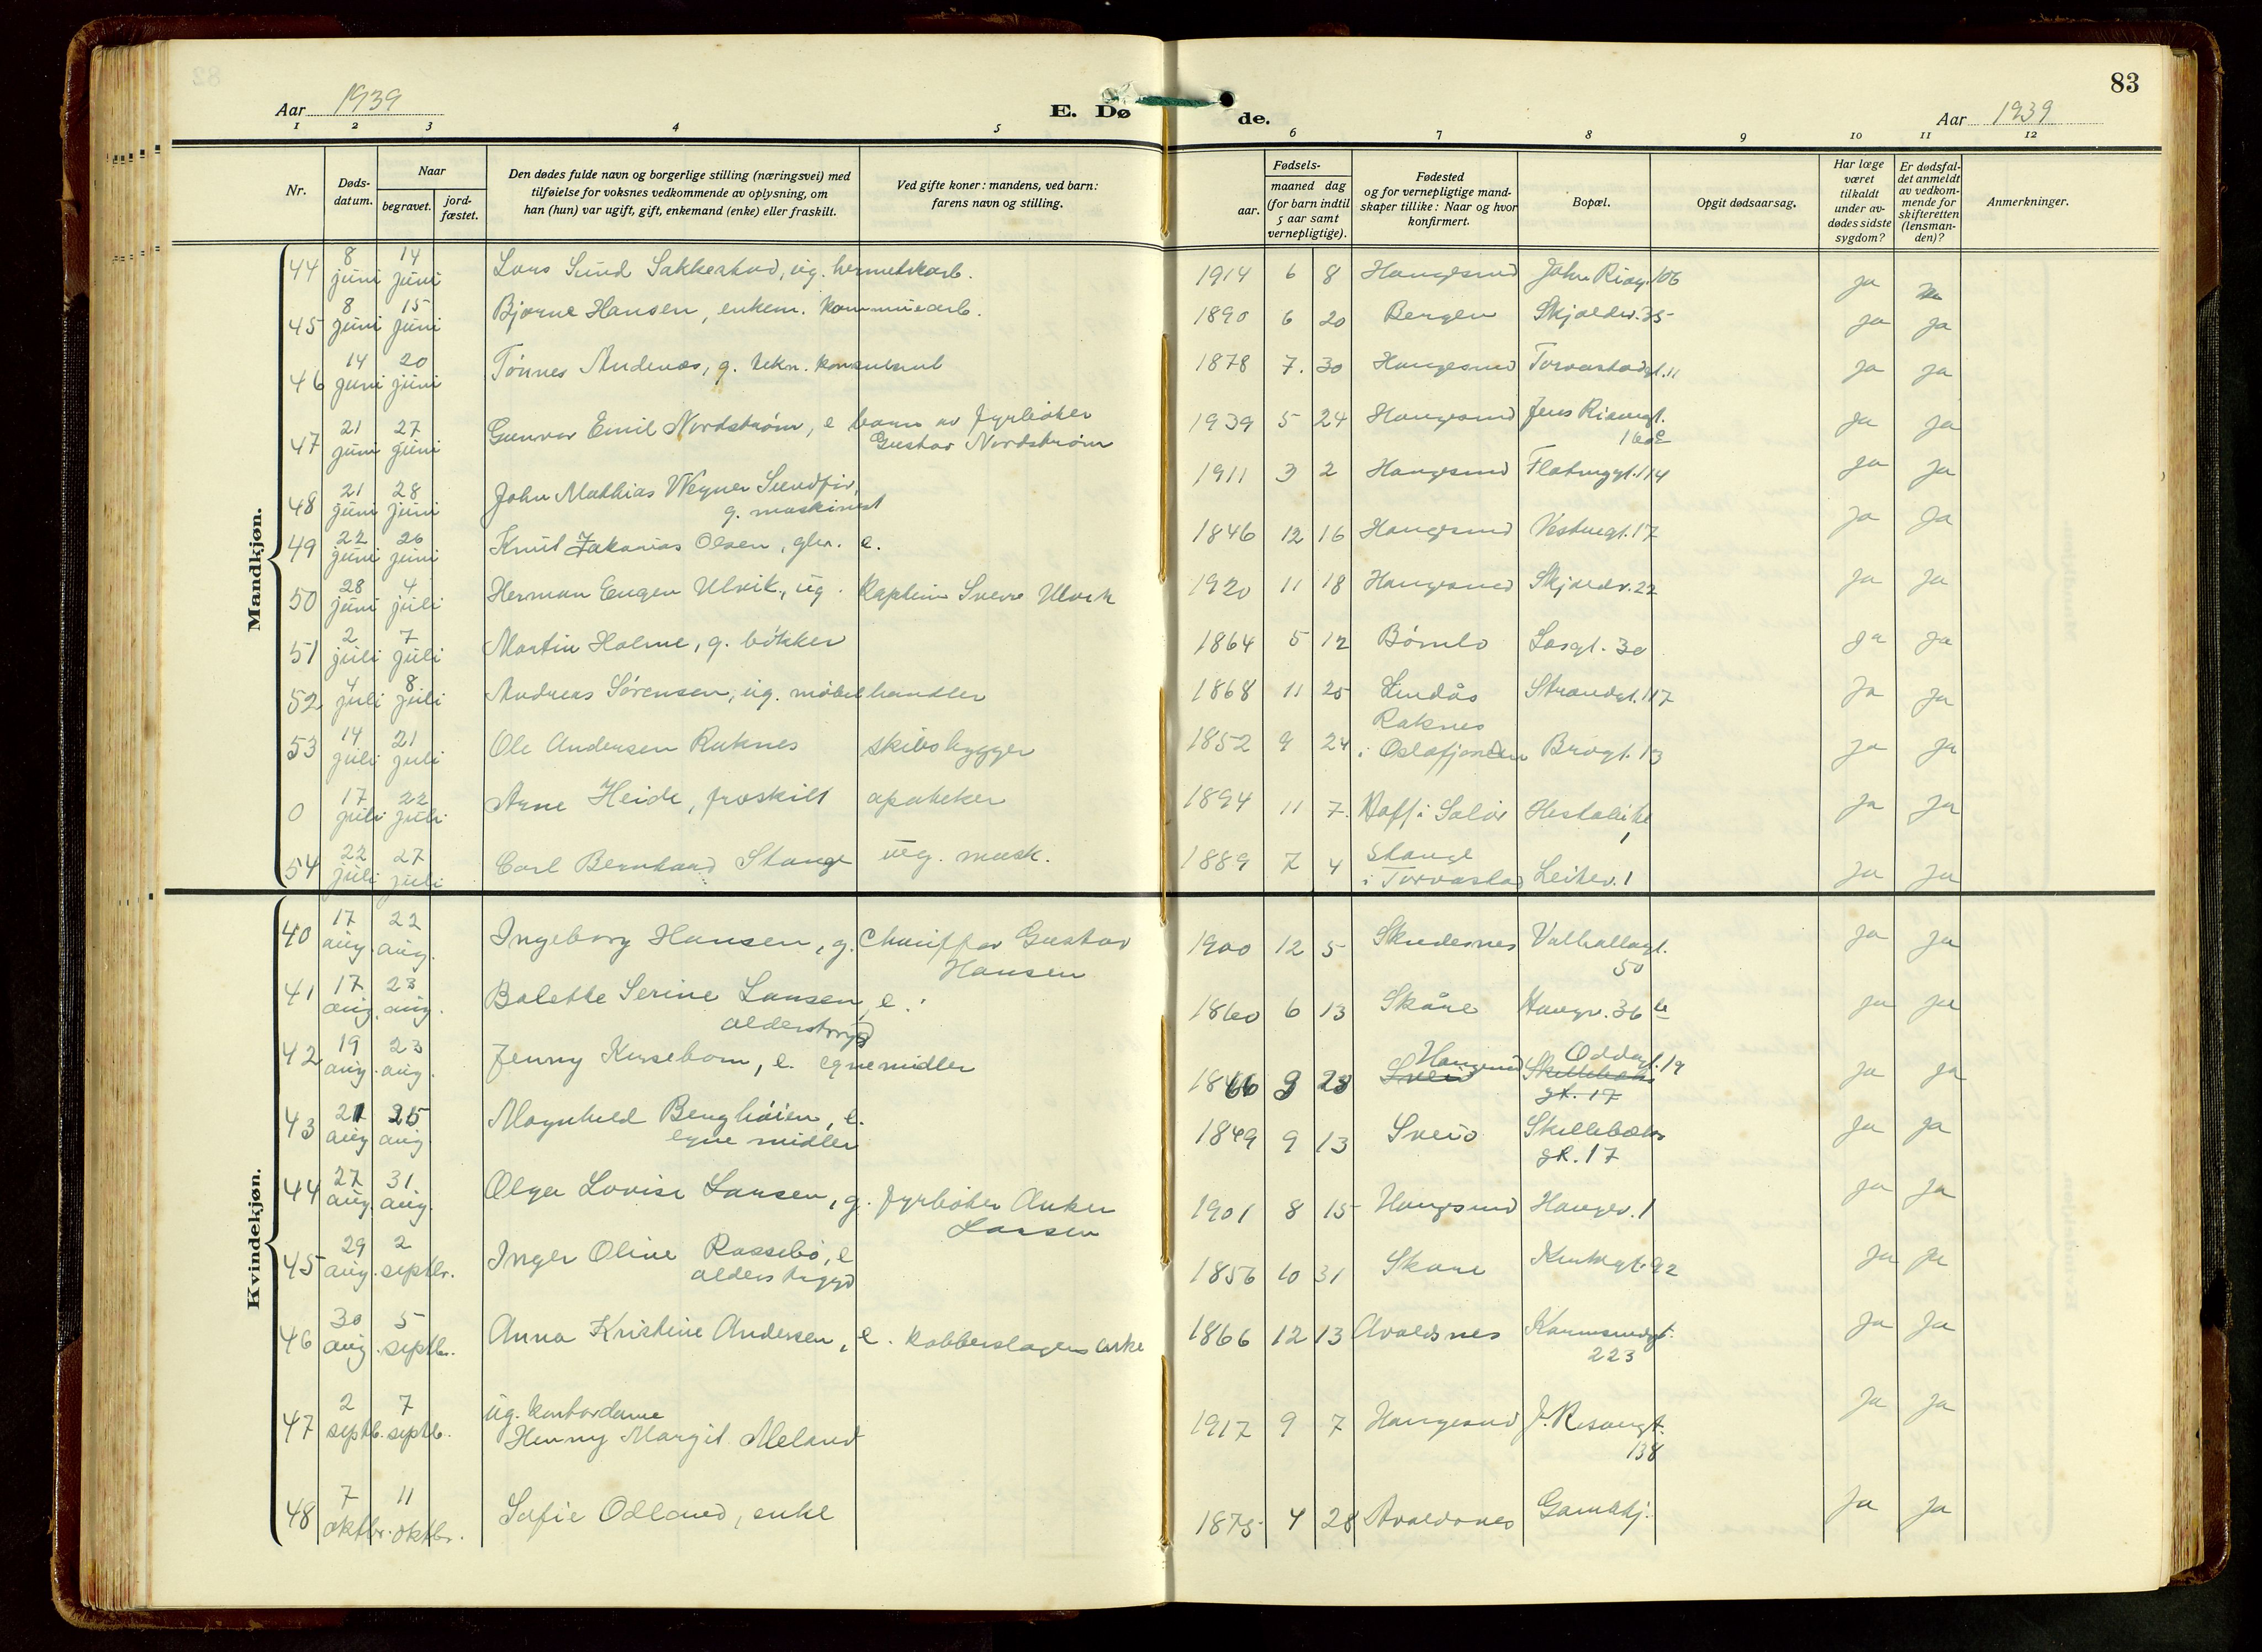 83
Aar 1939
E. Dø de.
Aar 1939
1 2 3 4 5 6 7 8 9 10 11 12
Nr.
Døds-
datum.
Naar
begravet.
jord-
fæstet.
Den dødes fulde navn og borgerlige stilling (næringsvei) med
tilføielse for voksnes vedkommende av oplysning, om
han (hun) var ugift, gift, enkemand (enke) eller fraskilt.
Ved gifte koner: mandens, ved barn:
farens navn og stilling.
Fødsels-
aar.
maaned dag
(for barn indtil
5 aar samt
vernepligtige).
Fødested
og for vernepligtige mand-
skaper tillike: Naar og hvor
konfirmert.
Bopæl.
Opgit dødsaarsag.
Har læge
været
tilkaldt
under av-
dødes sidste
sygdom?
Er dødsfal-
det anmeldt
av vedkom-
mende for
skifteretten
(lensman-
den)?
Anmerkninger.
Mandkjøn.
44 8 juni 14 juni Lars Sund Sakkestad, ug. hermetikarb. 1914 6 8 Haugesund John Risøy. 106 ja
45 8 juni 15 juni Bjarne Hansen, enkem. kommunearb. 1890 6 20 Bergen Skjoldv. 35 ja ja
46 14 juni 20 juni Tønnes Andenæs, g. tekn. konsulent 1878 7. 30 Haugesund Torvastadgt. 11 ja ja
47 21 juni 27 juni Gunvar Emil Nordstrøm, e barn av fyrbøter
Gustav Nordstrøm 1939 5 24 Haugesund Jens Risøengt.
160 ja ja
48 21 juni 28 juni John Mathias Wegner Sundfør,
g. maskinist 1911 3 2 Haugesund Flotmyrgt. 114 ja ja
49 22 juni 26 juni Knut Zakarias Olsen, glm. e. 1846 12 16 Haugesund Vestregt. 17 ja ja
50 28 juni 4 juli Herman Eugen Ulvik, ug. kaptein Sverre Ulvik 1920 11 18 Haugesund Skjoldv. 22 ja ja
51 2 juli 7 juli Martin Holme, g. bøkker 1864 5 12 Bømlo Losgt. 30 ja ja
52 4 juli 8 juli Andreas Sørensen, ug. møbelhandler 1868 11 25 Lindås Strandgt. 117 ja ja
53 14 juli 21 juli Ole Andersen Raknes skibsbygger 1852 9 24 Raknes
i Oslofjorden Brogt. 13 ja ja
0 17 juli 22 juli Arne Heide, fraskilt apoteker 1894 11 7. Hoff i Solør 1 ja ja
54 22 juli 27 juli Carl Bernhard Stange ug. mask. 1889 7 4 Stange
i Torvastad Leitev. 1 ja ja
Kvindekjøn.
40 17 aug. 22 aug. Ingeborg Hansen, g. Chauffør Gustav
Hansen 1900 12 5 Skudesnes Valhallagt.
50 ja ja
41 17 aug. 23 aug. Balette Serine Lansen, e.
alderstrygd 1860 6 13 Skåre Haugv. 36 ja ja
42 19 aug. 23 aug. Jenny Kersebom, e. egne midler 1866 9 23 Haugesund Sveio Oddagt. 19 Skillebæks
gt. 17 ja ja
43 21 aug 25 aug. Magnhild Benghøien, e.
egne midler 1849 9 13 Sveio Skillebæks
gt. 17 ja ja
44 27 aug. 31 aug. Olga Lovise Larsen, g. fyrbøter Anker
Larsen 1901 8 15 Haugesund Haugev. 1 ja ja
45 29 aug. 2 septbr. Inger Oline Rossebø, e
alders trygd 1856 10 31 Skåre 92 ja ja
46 30 aug. 5 septbr. Anna Kristine Andersen, e. kobberslagers enke 1866 12 13 Avaldsnes Karmsundgt.
223 ja ja
47 2 septb. 7 septb. ug. kontordame
Henny Margit Meland 1917 9 7 Haugesund J. Risøengt.
138 ja ja
48 7 oktbr. 11 oktbr. Sofie Odland, enke 1875 4 28 Avaldsnes Gamlhj. ja ja